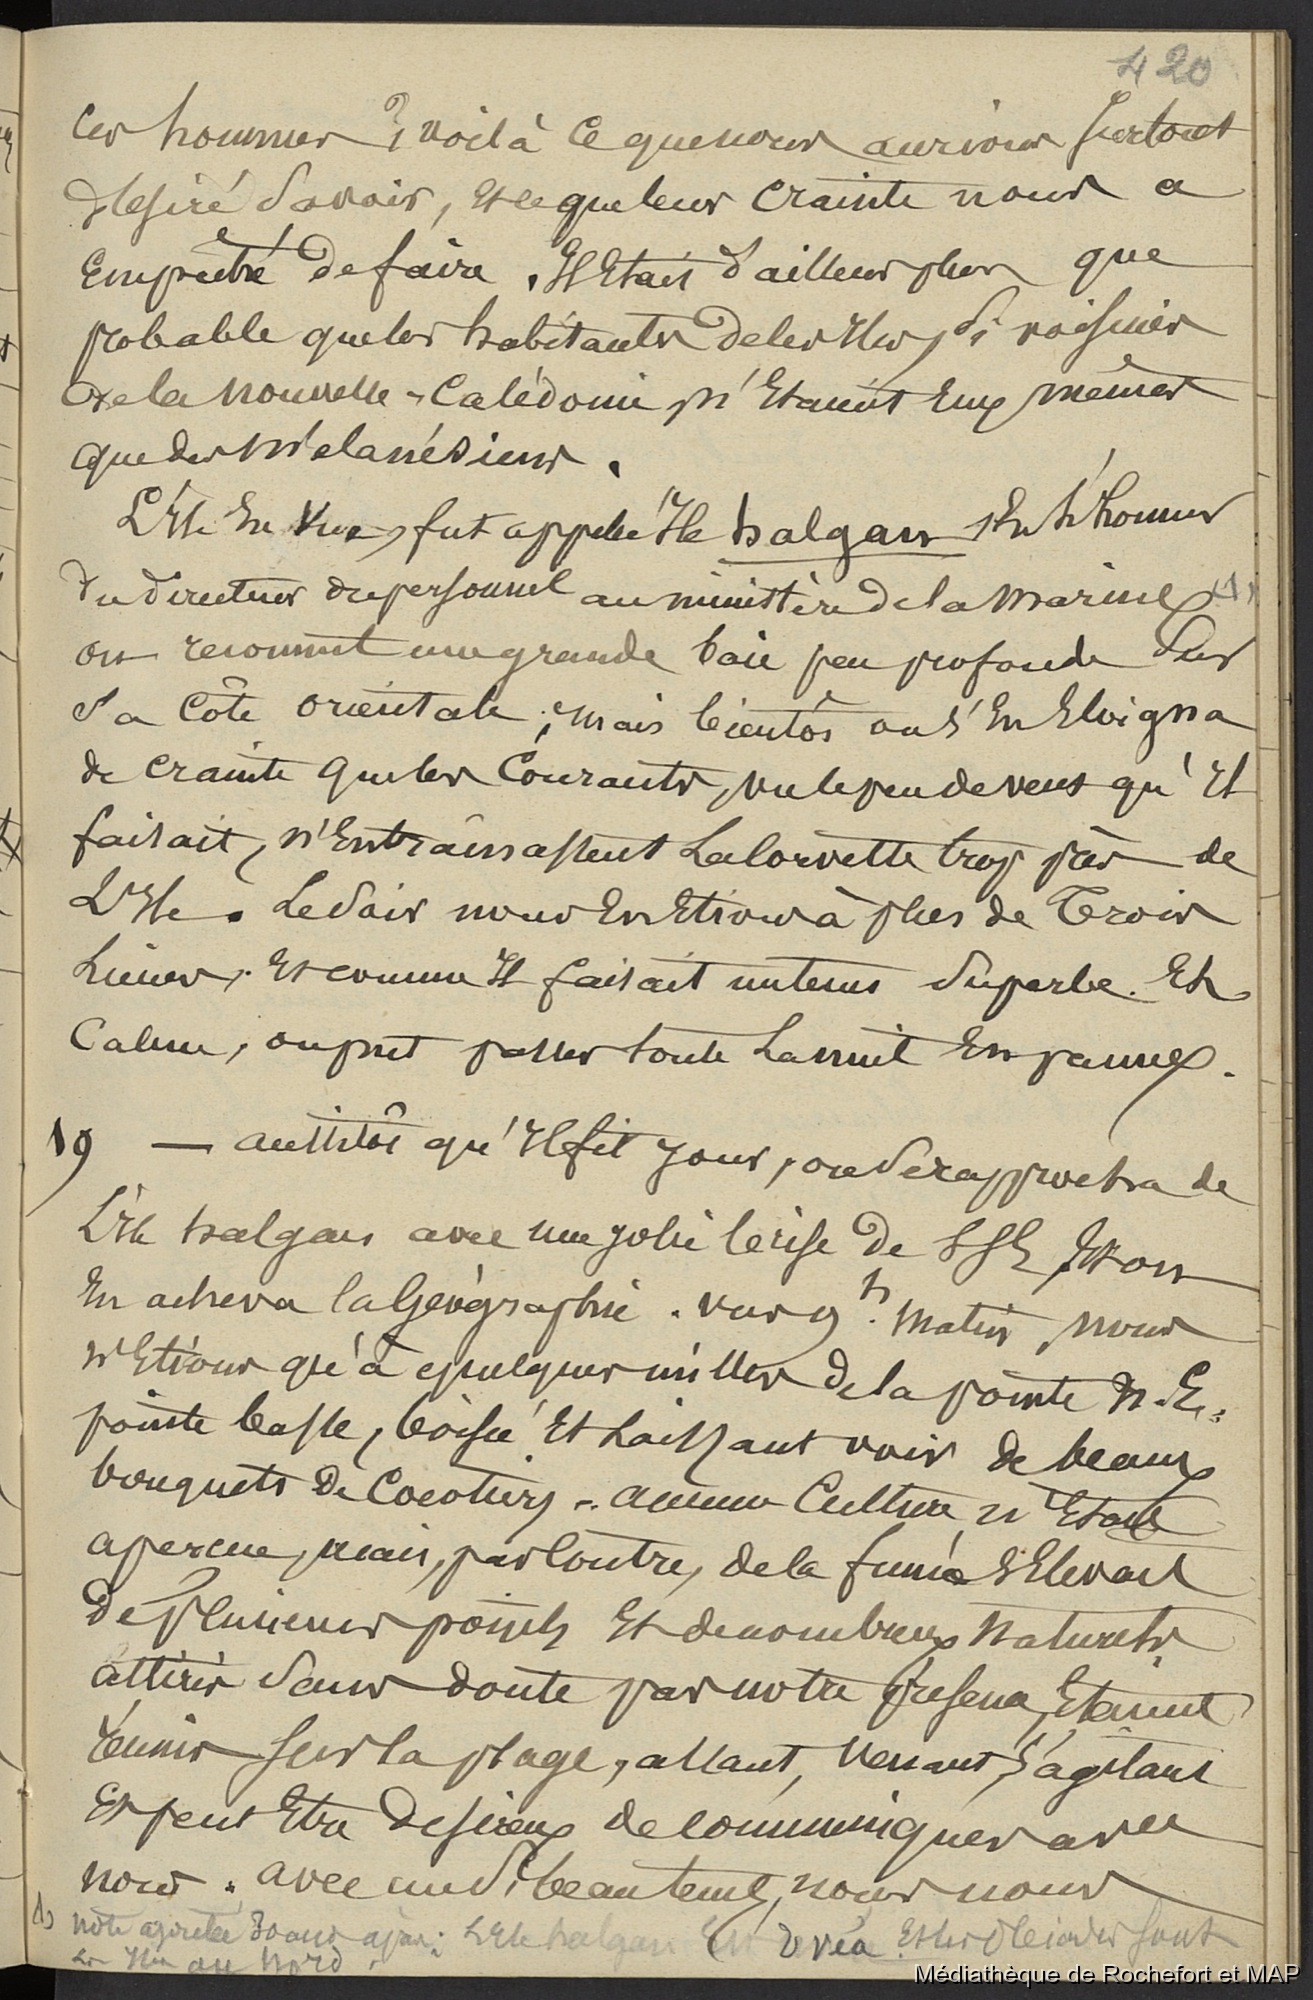 420
Ces hommes ? voilà ce que nous aurions surtout
désiré savoir, et ce que leur crainte nous a
empêché de faire. Il était d'ailleurs plus que
probable que les habitants de ces Iles, si voisines
de la Nouvelle-Calédonie, n'étaient Eux mêmes
que des Mélanésiens.
L'Ile En Vue, fut appelée Ile halgan, En l'honneur
du directeur du personnel au ministère de la Marine (1)
on reconnut une grande baie peu profonde sur
sa Côte orientale, mais bientôt on s'En Eloigna
de crainte que les Courants, vu le peu de vent qu'il
faisait, n'Entraînassent La Corvette trop près de
L'Ile. Le soir nous En Etions à plus de Trois
Lieues, Et comme Il faisait un tems superbe Et
Calme, on put passer toute La nuit En panne.
19 — aussitôt qu'Il fit jour, on se rapprocha de
L'Ile halgan avec une jolie brise de S S E, Et on
En acheva la Géographie. vers 9 h. Matin, nous
n'Etions qu'à quelques milles de la pointe N.E.,
pointe basse, boisée Et Laissant voir de beaux
bouquets de Cocotiers. aucune Culture n'Etait
aperçue, mais, par Contre, de la fumée s'Elevait
de plusieurs points Et de nombreux Naturels,
attirés sans doute par notre présence, Etaient
réunis sur la plage, allant, venant, s'agitant
Et peut Etre désireux de communiquer avec
nous. avec un si beau tems, nous nous
(1) note ajoutée 30 ans après: L'Ile halgan Est Uvéa Et les Pléiades sont
les Iles au Nord.
Médiathèque de Rochefort et MAP